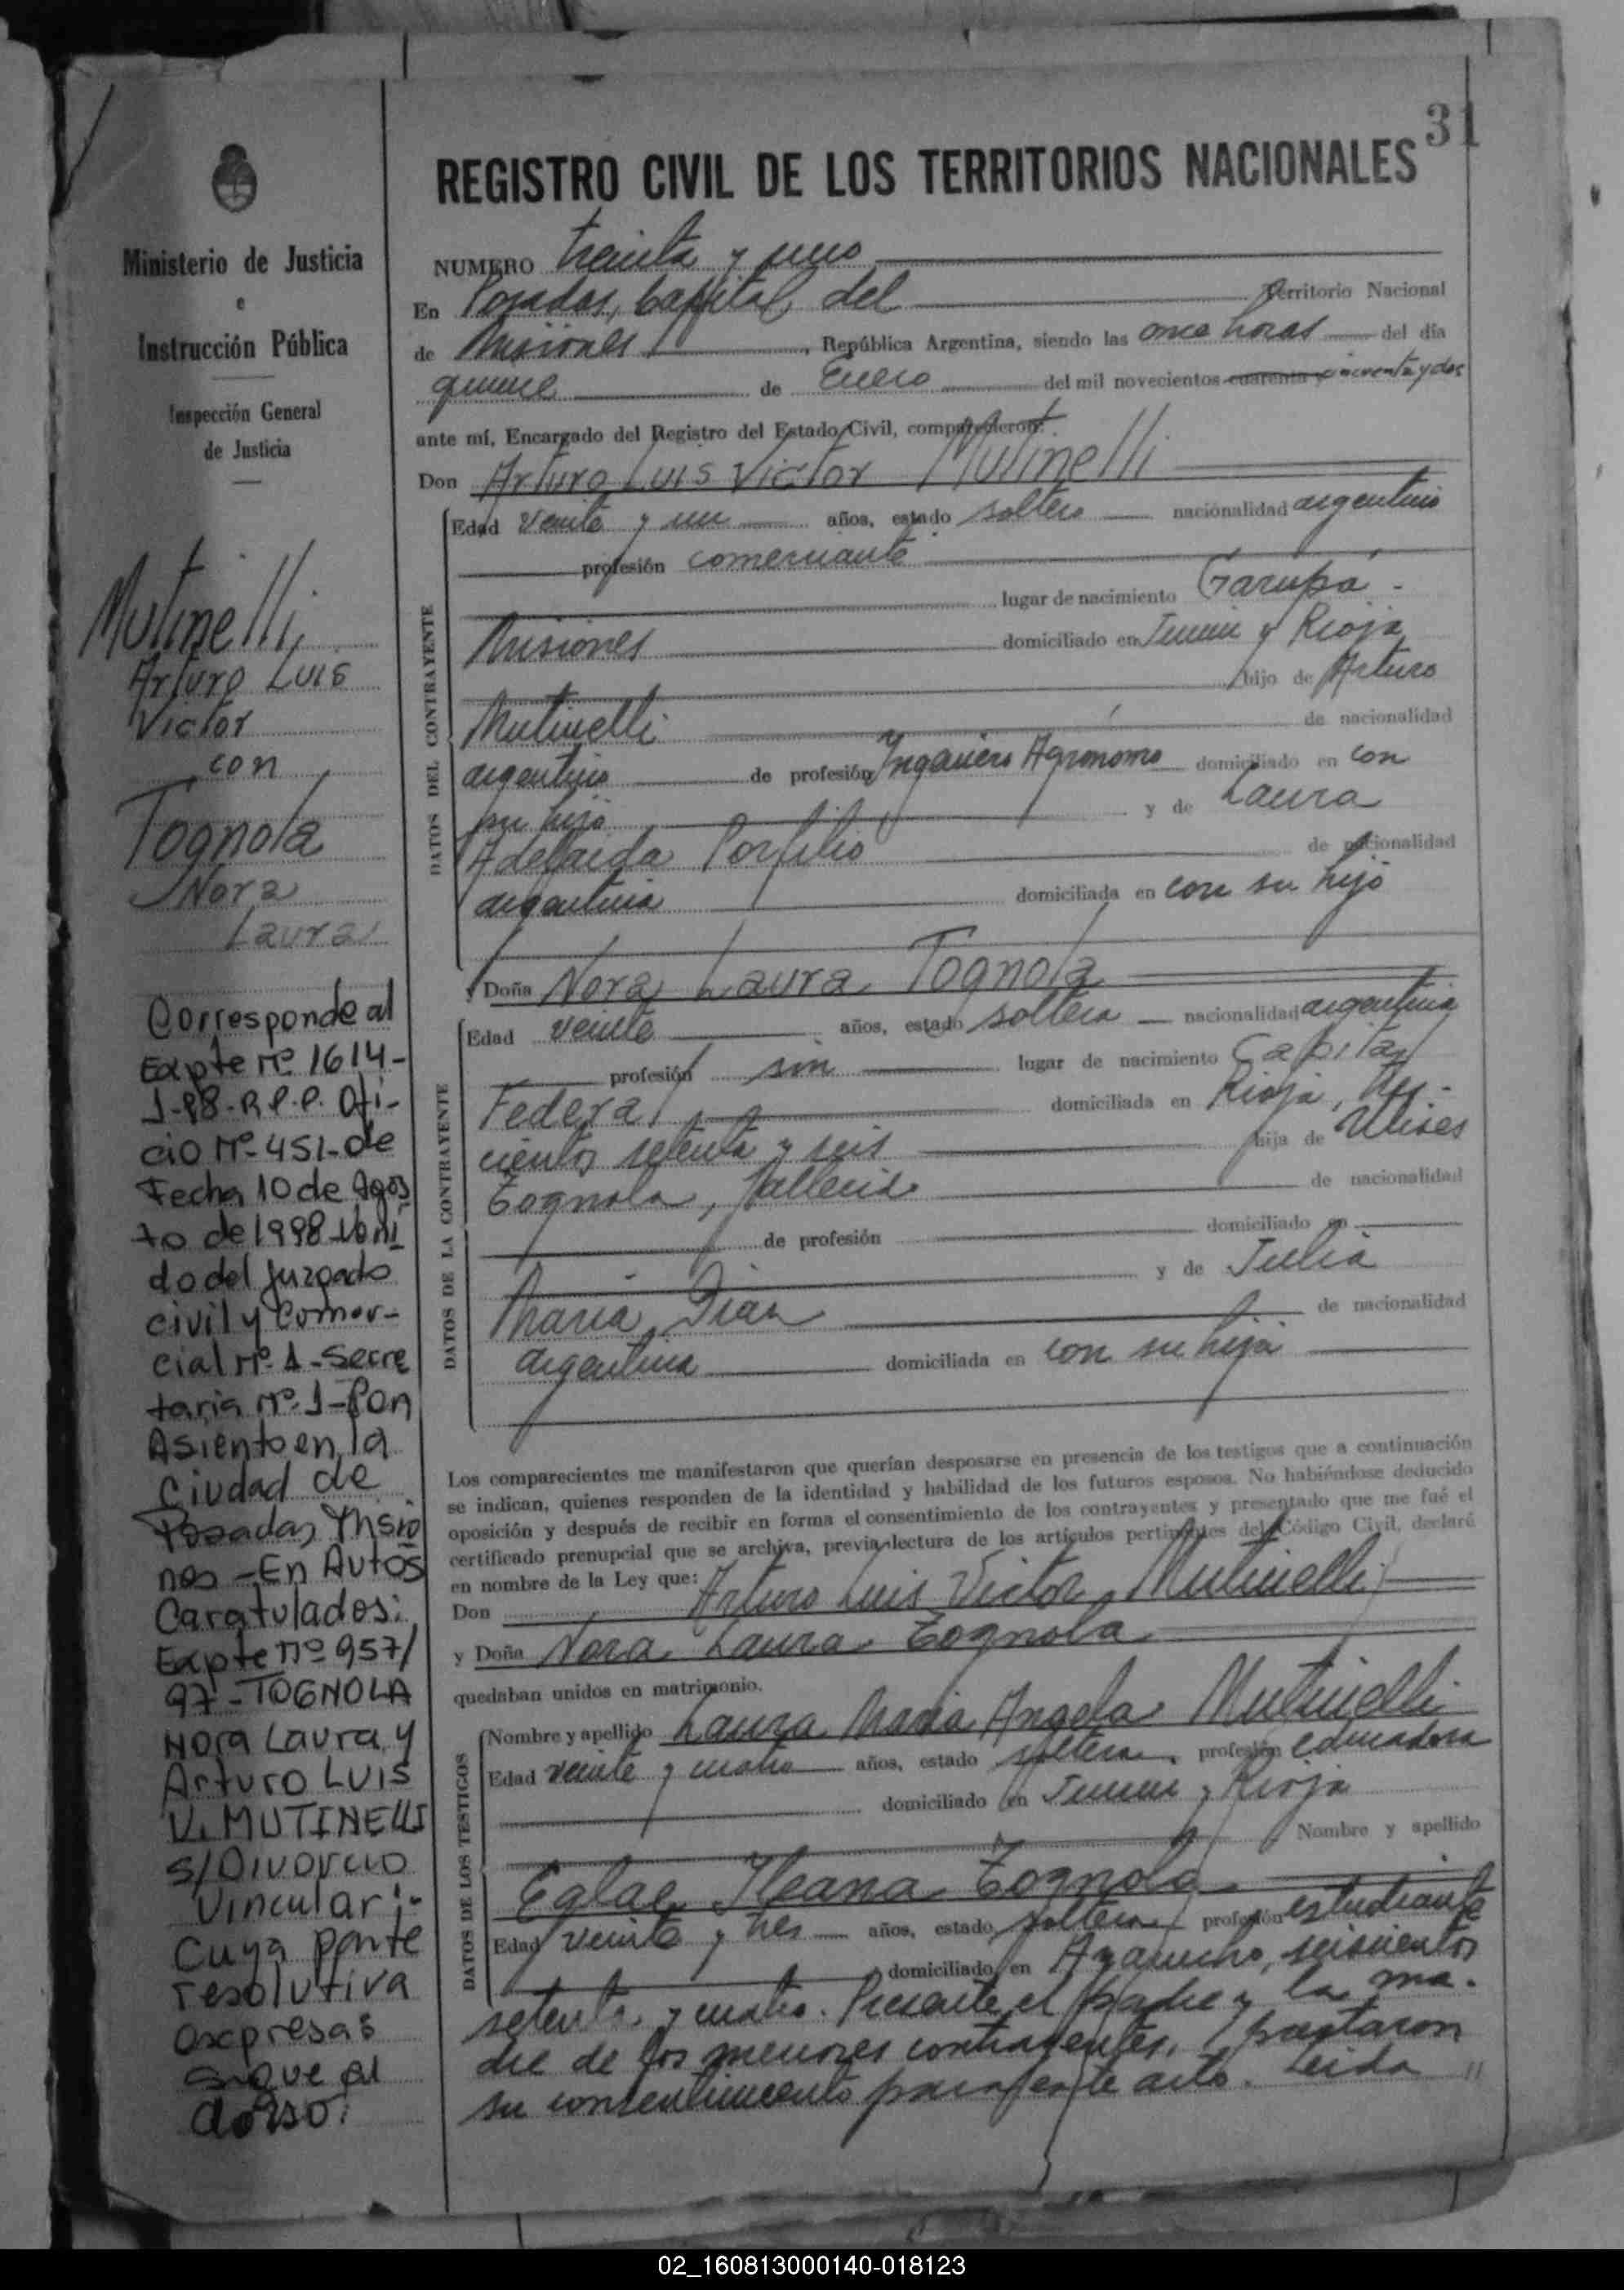 31
REGISTRO CIVIL DE LOS TERRITORIOS NACIONALES
Ministerio de Justicia
e
Instrucción Pública
Inspección General
de Justicia
Mutinelli
Arturo Luis
Victor
con
Tognola
Nora
Laura
Corresponde al
Expte Nº 1614-
J-98-R.P.P. Ofi-
cio Nº 451-de
Fecha 10 de Agos
to de 1998
do del Juzgado
civil y Comer-
cial Nº 1-Secre
taria Nº 1-Con
Asiento en la
Ciudad de
Posadas, Msio
nes-En Autos
Caratulados:
Expte Nº 957/
97-TOGNOLA
Nora Laura y
Arturo LUIS
V. MUTINELLI
S/Divorcio
Vincular:-
Cuya parte
resolutiva
expresa:
sigue al
dorso:
NUMERO treinta y uno
En Posadas, Capital del Territorio Nacional
de Misiones, República Argentina, siendo las once horas del día
quince de Enero del mil novecientos cuarenta y cincuenta y dos
ante mí, Encargado del Registro del Estado Civil, comparecieron:
Don Arturo Luis Victor Mutinelli
DATOS DEL CONTRAYENTE
Edad veinte y un años, estado soltero nacionalidad argentino
profesión comerciante
lugar de nacimiento Garupá-
Misiones domiciliado en Junin y Rioja
hijo de Arturo
Mutinelli de nacionalidad
argentino de profesión Ingeniero Agronomo domiciliado en con
su hijo y de Laura
Adelaida Porfilio de nacionalidad
argentina domiciliada en con su hijo
y Doña Nora Laura Tognola
DATOS DE LA CONTRAYENTE
Edad veinte años, estado soltera nacionalidad argentina
profesión sin lugar de nacimiento Capital
Federal domiciliada en Rioja, tres-
cientos setenta y seis hija de Ulises
Tognola, fallecido de nacionalidad
de profesión domiciliado en
y de Julia
María Diaz de nacionalidad
argentina domiciliada en con su hija
Los comparecientes me manifestaron que querían desposarse en presencia de los testigos que a continuación
se indican, quienes responden de la identidad y habilidad de los futuros esposos. No habiéndose deducido
oposición y después de recibir en forma el consentimiento de los contrayentes y presentado que me fué el
certificado prenupcial que se archiva, previa lectura de los artículos pertinentes del Código Civil, declaré
en nombre de la Ley que:
Don Arturo Luis Victor Mutinelli
y Doña Nora Laura Tognola
quedaban unidos en matrimonio.
DATOS DE LOS TESTIGOS
Nombre y apellido Laura Maria Angela Mutinelli
Edad veinte y cuatro años, estado soltera, profesión educadora
domiciliado en Junin y Rioja
Nombre y apellido
Eglae Ileana Tognola
Edad veinte y tres años, estado soltera profesión estudiante
domiciliado en Ayacucho, seiscientos
setenta y cuatro. Presente el padre y la ma-
dre de los menores contrayentes, prestaron
su consentimiento para este acto. Leida "
02_160813000140-018123